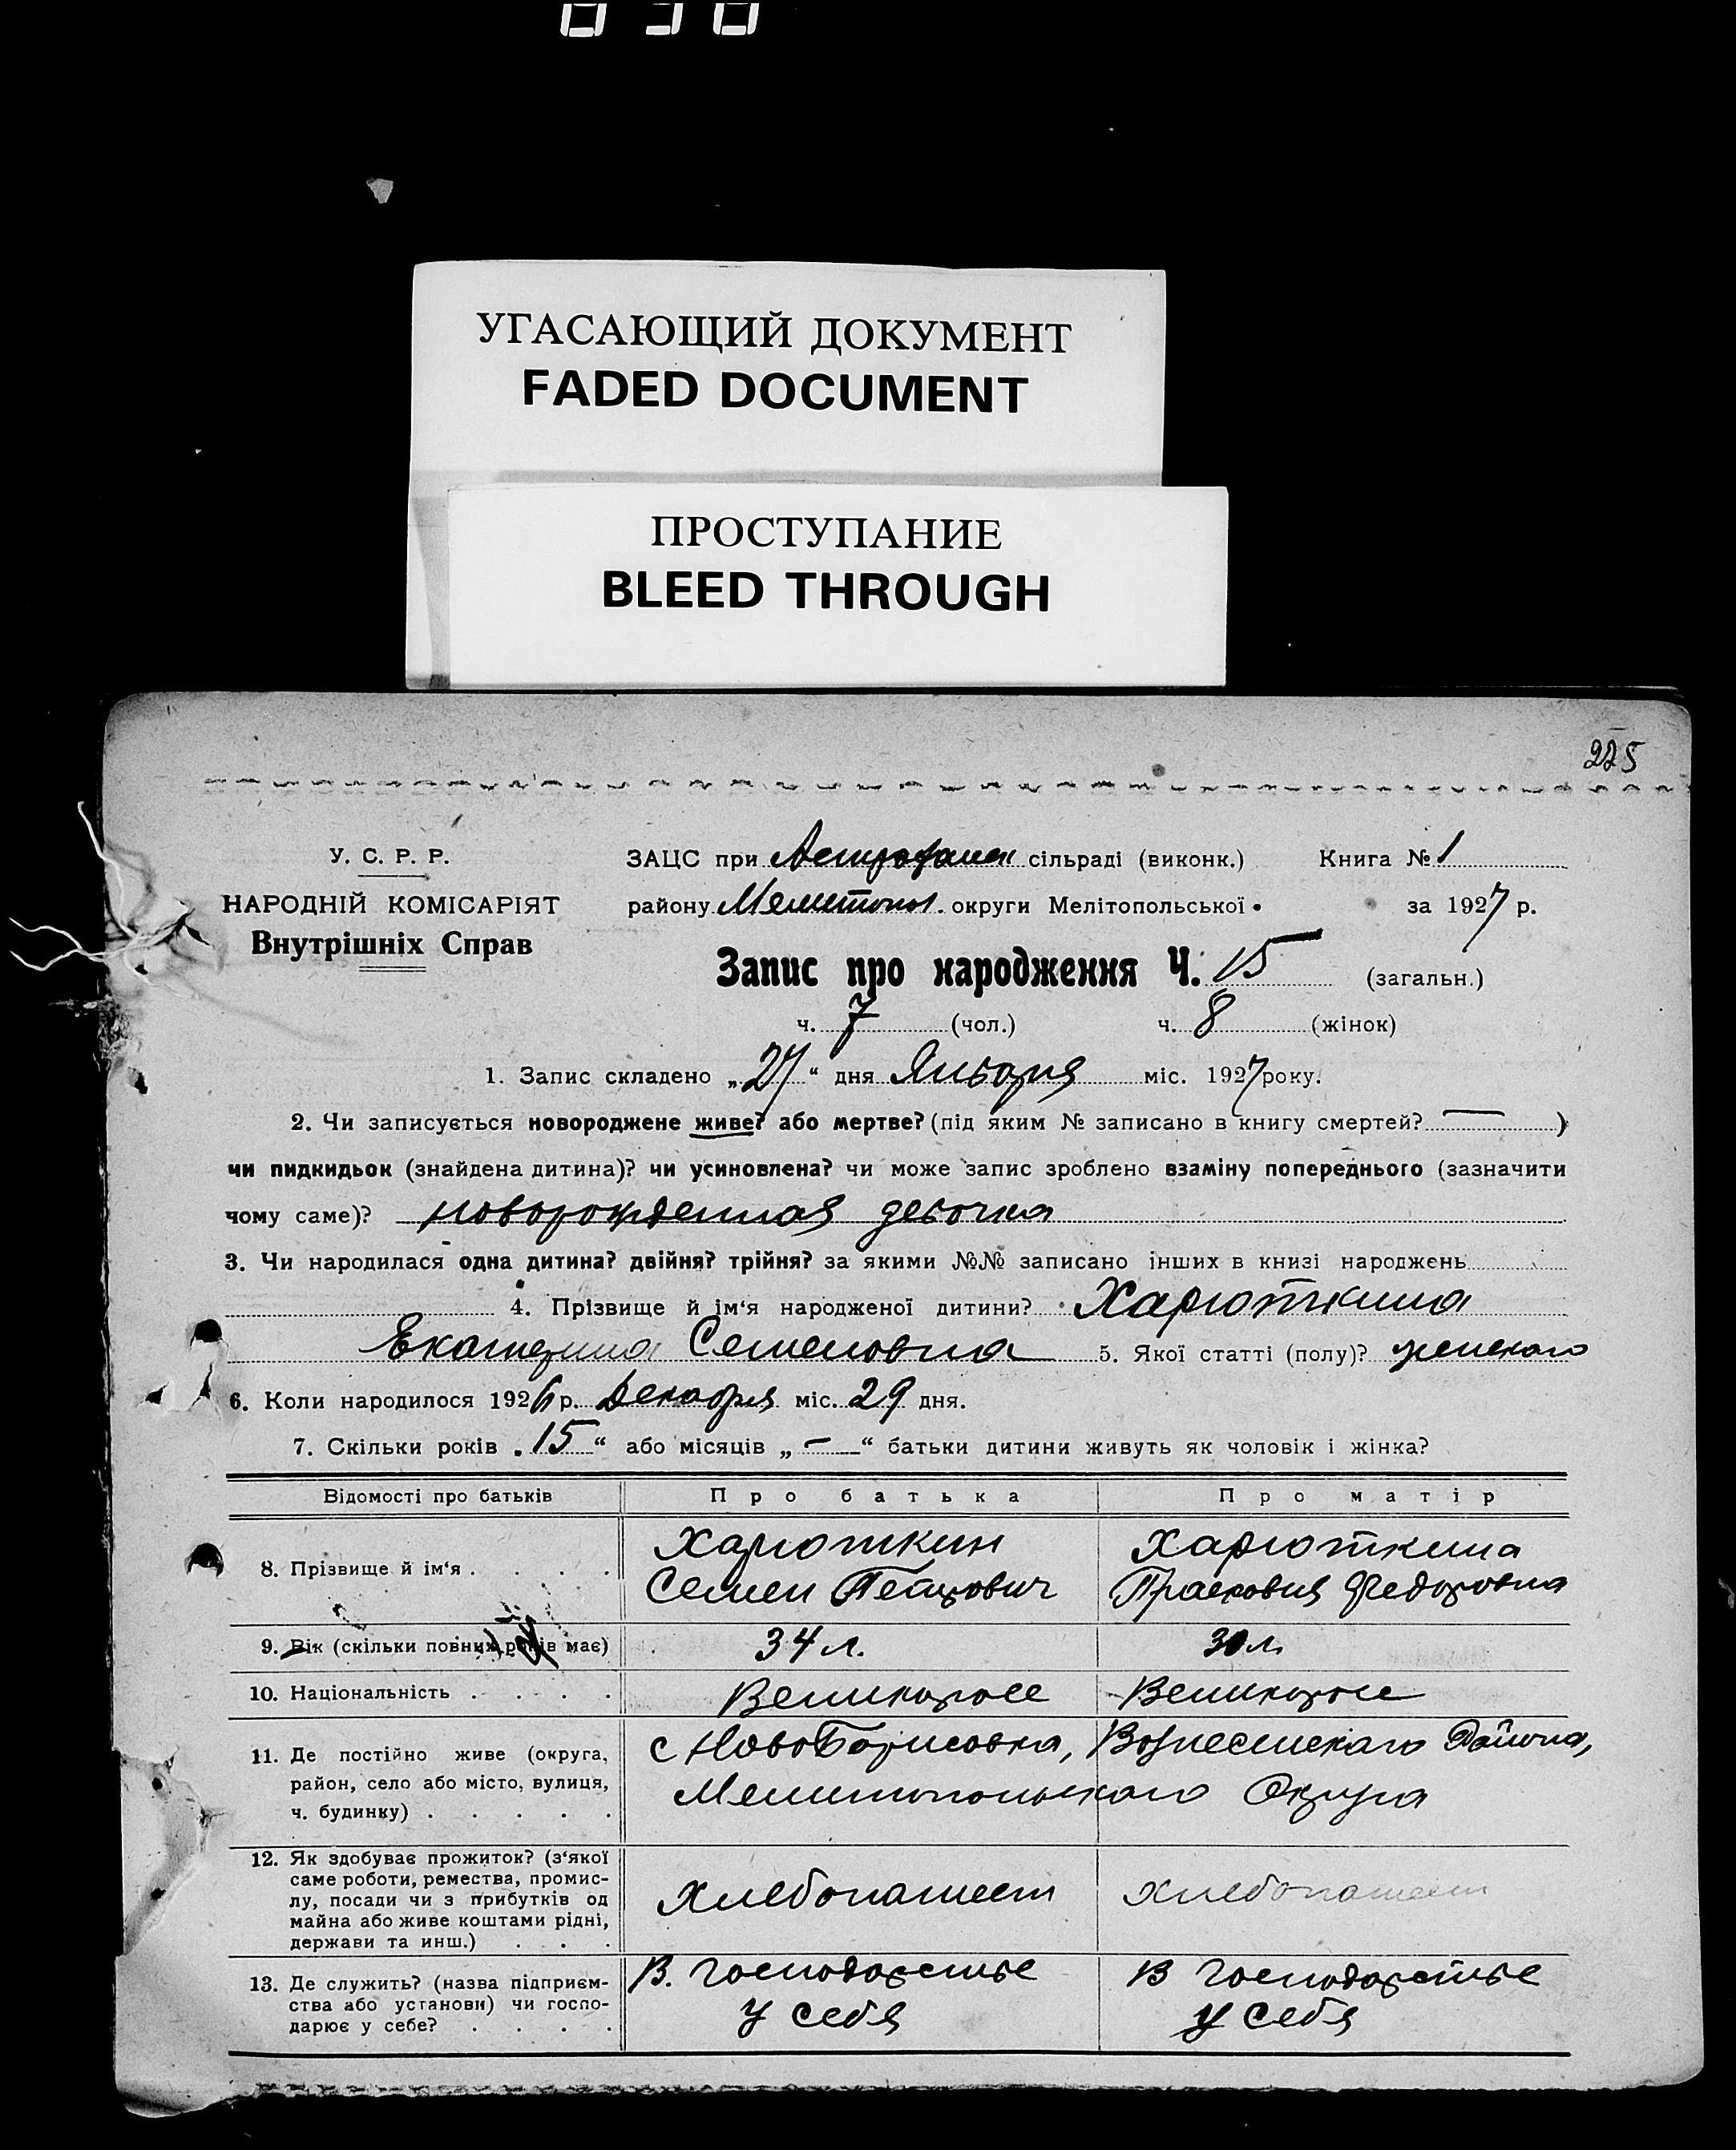 УГАСАЮЩИЙ ДОКУМЕНТ
FADED DOCUMENT
ПРОСТУПАНИЕ
BLEED THROUGH
225
У. С. Р. Р.
НАРОДНІЙ КОМІСАРІЯТ
Внутрішніх Справ
ЗАЦС при Астрахан сільраді (виконк.) Книга № 1
району Мелитопол. округи Мелітопольської за 1927 р.
Запис про народження Ч. 15 (загальн.)
ч. 7 (чол.) ч. 8 (жінок)
1. Запис складено „27“ дня Января міс. 1927 року.
2. Чи записується новороджене живе? або мертве? (під яким № записано в книгу смертей? — )
чи пидкидьок (знайдена дитина)? чи усиновлена? чи може запис зроблено взаміну попереднього (зазначити
чому саме)? новорожденная девочка
3. Чи народилася одна дитина? двійня? трійня? за якими №№ записано інших в книзі народжень
4. Прізвище й ім‘я народженої дитини? Харюткина
Екатерина Семеновна 5. Якої статті (полу)? женскаго
6. Коли народилося 1926 р. Декабря міс. 29 дня.
7. Скільки років „15“ або місяців „—“ батьки дитини живуть як чоловік і жінка?
Відомості про батьків Про батька Про матір
8. Прізвище й ім‘я . . . . Харюткин Харюткина
Семен Петрович Прасковия Федоровна
9. Вік (скільки повних років має) 34 л. 30 л.
10. Національність . . . . Великоросс Великоросс
11. Де постійно живе (округа, с НовоБорисовка, Вознесенскаго Района,
район, село або місто, вулиця, Мелитопольскаго Округа
ч. будинку) . . . . .
12. Як здобуває прожиток? (з‘якої
саме роботи, ремества, промис-
лу, посади чи з прибутків од Хлебопашест Хлебопашест
майна або живе коштами рідні,
держави та инш.) . . .
13. Де служить? (назва підприєм- В. господарстве В господарстве
ства або установи) чи госпо- у себя у себя
дарює у себе? . . . .